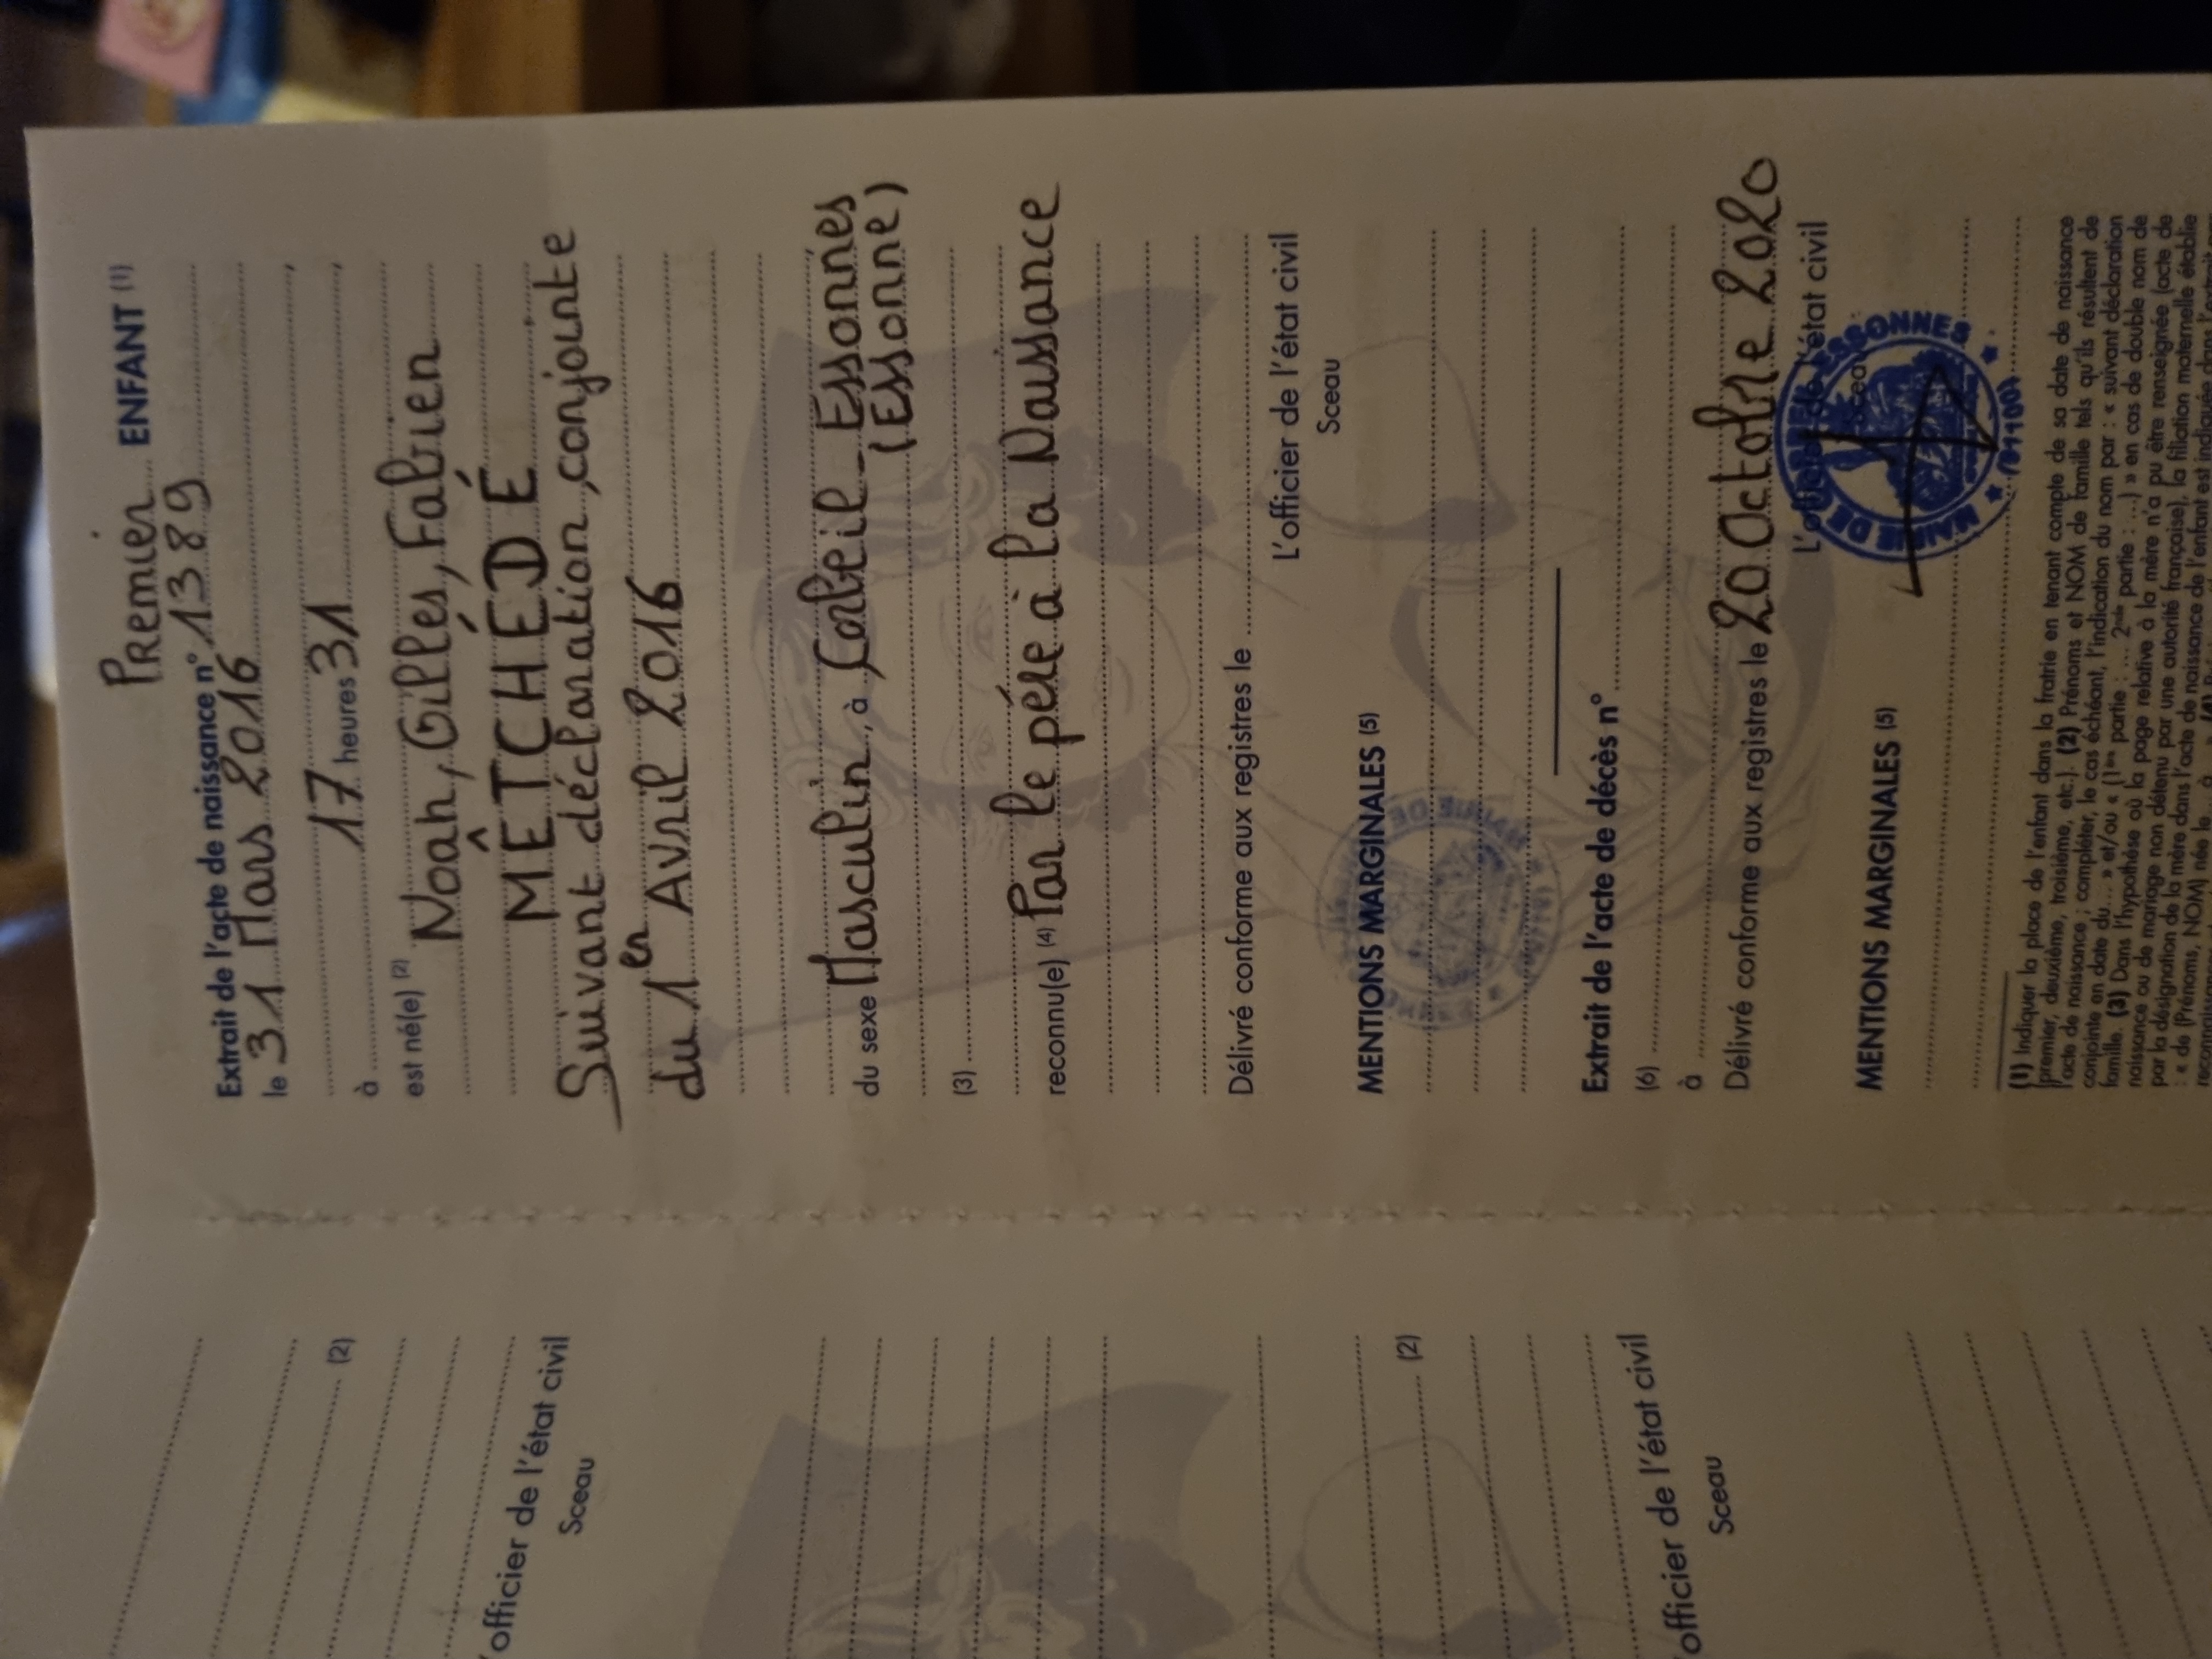 Premier ENFANT (1)
Extrait de l'acte de naissance n° 1389
le 31 Mars 2016
à 17 heures 31
est né(e) (2)
Noah, Gilles, Fabien
MÊTCHÉDÉ
Suivant déclaration conjointe
du 1er Avril 2016
du sexe Masculin, à Corbeil-Essonnes
(Essonne)
(3)
reconnu(e) (4) Par le père à la Naissance
Délivré conforme aux registres le
L'officier de l'état civil
Sceau
MENTIONS MARGINALES (5)
Extrait de l'acte de décès n°
(6)
à
Délivré conforme aux registres le 20 Octobre 2020
L'officier de l'état civil
Sceau
MAIRIE DE CORBEIL-ESSONNES
(91100)
MENTIONS MARGINALES (5)
(1) Indiquer la place de l'enfant dans la fratrie en tenant compte de sa date de naissance
(premier, deuxième, troisième, etc.). (2) Prénoms et NOM de famille tels qu'ils résultent de
l'acte de naissance ; compléter, le cas échéant, l'indication du nom par : « suivant déclaration
conjointe en date du... » et/ou « (1ère partie : ... 2nde partie : ...) » en cas de double nom de
famille. (3) Dans l'hypothèse où la page relative à la mère n'a pu être renseignée (acte de
naissance ou de mariage non détenu par une autorité française), la filiation maternelle établie
par la désignation de la mère dans l'acte de naissance de l'enfant est indiquée dans l'extrait
: « de (Prénoms, NOM) née le
(2)
officier de l'état civil
Sceau
(2)
officier de l'état civil
Sceau